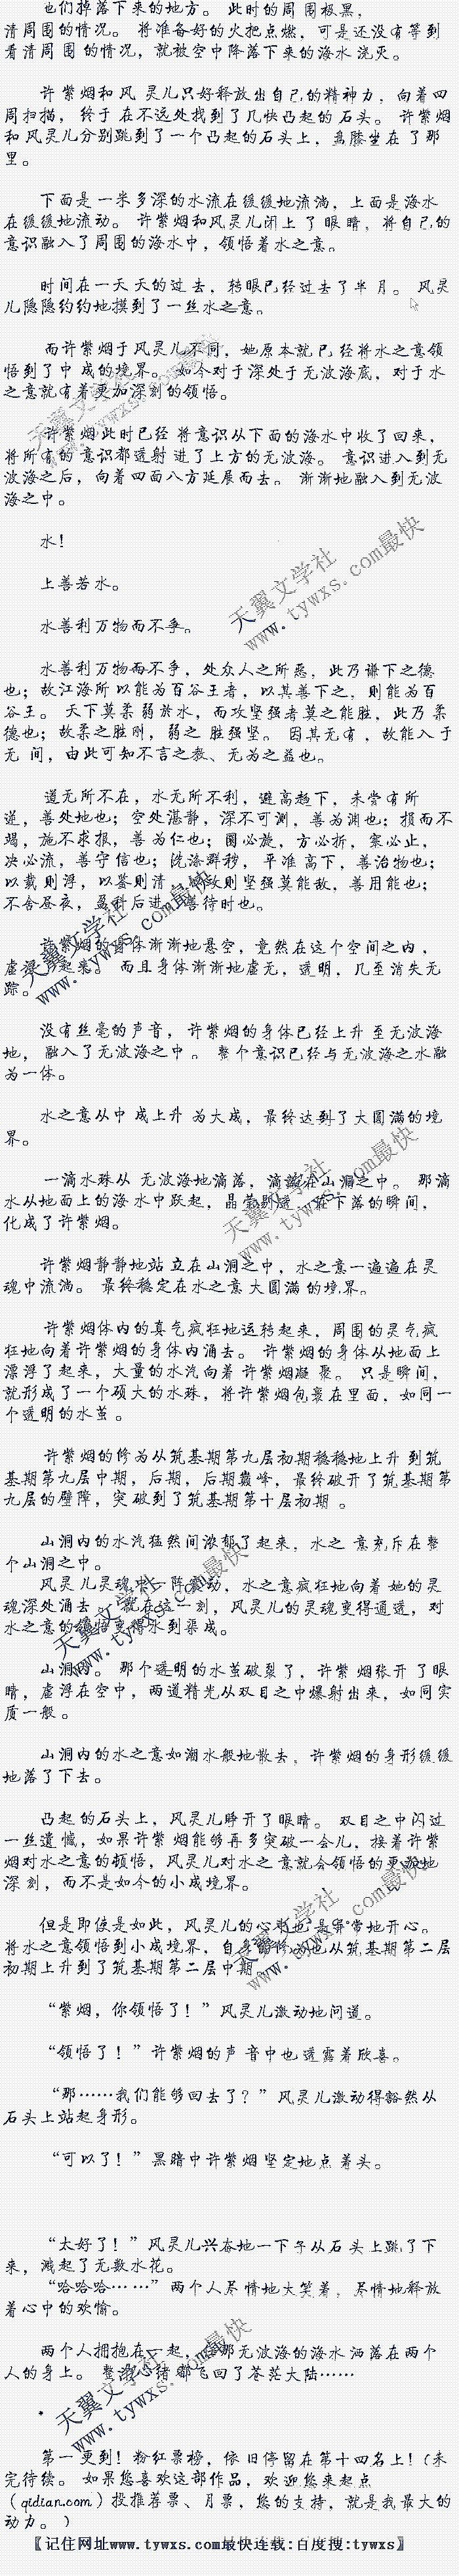 也们掉落下来的地方。 此时的周围极黑,
清周围的情况。 将准备好的火把点燃,可是还没有等到
看清周围的情况,就被空中降落下来的海水浇灭。
许紫烟和风灵儿只好释放出自己的精神力,向着四
周扫描,终于在不远处找到了几快凸起的石头。 许紫烟
和风灵儿分别跳到了一个凸起的石头上,盘膝坐在了那
里。
下面是一米多深的水流在缓缓地流淌,上面是海水
在缓缓地流动。 许紫烟和风灵儿闭上了眼睛,将自己的
意识融入了周围的海水中,领悟着水之意。
时间在一天天的过去,转眼已经过去了半月。 风灵
儿隐隐约约地摸到了一丝水之意。
而许紫烟于风灵儿不同,她原本就已经将水之意领
悟到了中成的境界。 如今对于深处于无波海底,对于水
之意就有着更加深刻的领悟。
许紫烟此时已经将意识从下面的海水中收了回来,
将所有的意识都透射进了上方的无波海。 意识进入到无
波海之后,向着四面八方延展而去。 渐渐地融入到无波
海之中。
水!
上善若水。
水善利万物而不争。
水善利万物而不争,处众人之所恶,此乃谦下之德
也;故江海所以能为百谷王者,以其善下之,则能为百
谷王。 天下莫柔弱於水,而攻坚强者莫之能胜,此乃柔
德也;故柔之胜刚,弱之胜强坚。 因其无有,故能入于
无间,由此可知不言之教、无为之益也。
道无所不在,水无所不利,避高趋下,未尝有所
逆,善处地也;空处湛静,深不可测,善为渊也;损而不
竭,施不求报,善为仁也;圜必旋,方必折,塞必止,
决必流,善守信也;洗涤群秽,平准高下,善治物也;
以载则浮,以鉴则清,以攻则坚强莫能敌,善用能也;
不舍昼夜,盈科后进,善待时也。
许紫烟的身体渐渐地悬空,竟然在这个空间之内,
虚浮了起来。 而且身体渐渐地虚无,透明,几至消失无
踪。
没有丝毫的声音,许紫烟的身体已经上升至无波海
地,融入了无波海之中。 整个意识已经与无波海之水融
为一体。
水之意从中成上升为大成,最终达到了大圆满的境
界。
一滴水珠从无波海地滴落,滴落在山洞之中。 那滴
水从地面上的海水中跃起,晶莹剔透,在下落的瞬间,
化成了许紫烟。
许紫烟静静地站立在山洞之中,水之意一遍遍在灵
魂中流淌。 最终稳定在水之意大圆满的境界。
许紫烟体内的真气疯狂地运转起来,周围的灵气疯
狂地向着许紫烟的身体内涌去。 许紫烟的身体从地面上
漂浮了起来,大量的水汽向着许紫烟凝聚。 只是瞬间,
就形成了一个硕大的水珠,将许紫烟包裹在里面,如同一
个透明的水茧。
许紫烟的修为从筑基期第九层初期稳稳地上升到筑
基期第九层中期,后期,后期巅峰,最终破开了筑基期第
九层的壁障,突破到了筑基期第十层初期。
山洞内的水汽猛然间浓郁了起来,水之意充斥在整
个山洞之中。
风灵儿灵魂中一阵颤动,水之意疯狂地向着她的灵
魂深处涌去。 就在这一刻,风灵儿的灵魂变得通透,对
水之意的领悟变得水到渠成。
山洞内。 那个透明的水茧破裂了,许紫烟张开了眼
睛,虚浮在空中,两道精光从双目之中爆射出来,如同实
质一般。
山洞内的水之意如潮水般地散去,许紫烟的身形缓缓
地落了下去。
凸起的石头上,风灵儿睁开了眼睛。 双目之中闪过
一丝遗憾,如果许紫烟能够再多突破一会儿,接着许紫
烟对水之意的顿悟,风灵儿对水之意就会领悟的更加地
深刻,而不是如今的小成境界。
但是即使是如此,风灵儿的心里也是异常地开心。
将水之意领悟到小成境界,自身的修为也从筑基期第二层
初期上升到了筑基期第二层中期。
“紫烟,你领悟了!”风灵儿激动地问道。
“领悟了!”许紫烟的声音中也透露着欣喜。
“那……我们能够回去了?”风灵儿激动得豁然从
石头上站起身形。
“可以了!”黑暗中许紫烟坚定地点着头。
“太好了!”风灵儿兴奋地一下子从石头上跳了下
来,溅起了无数水花。
“哈哈哈……”两个人尽情地大笑着,尽情地释放
着心中的欢愉。
两个人拥抱在一起,任那无波海的海水洒落在两个
人的身上。 整个心绪都飞回了苍茫大陆……
*
第一更到!粉红票榜,依旧停留在第十四名上!(未
完待续。 如果您喜欢这部作品,欢迎您来起点
(qidian.com)投推荐票、月票,您的支持,就是我最大的
动力。)
〖记住网址www.tywxs.com最快连载:百度搜:tywxs〗
天翼文学社
www.tywxs.com最快
天翼文学社
www.tywxs.com最快
天翼文学社
www.tywxs.com最快
天翼文学社
www.tywxs.com最快
天翼文学社
www.tywxs.com最快
天翼文学社
www.tywxs.com最快
天翼文学社
www.tywxs.com最快